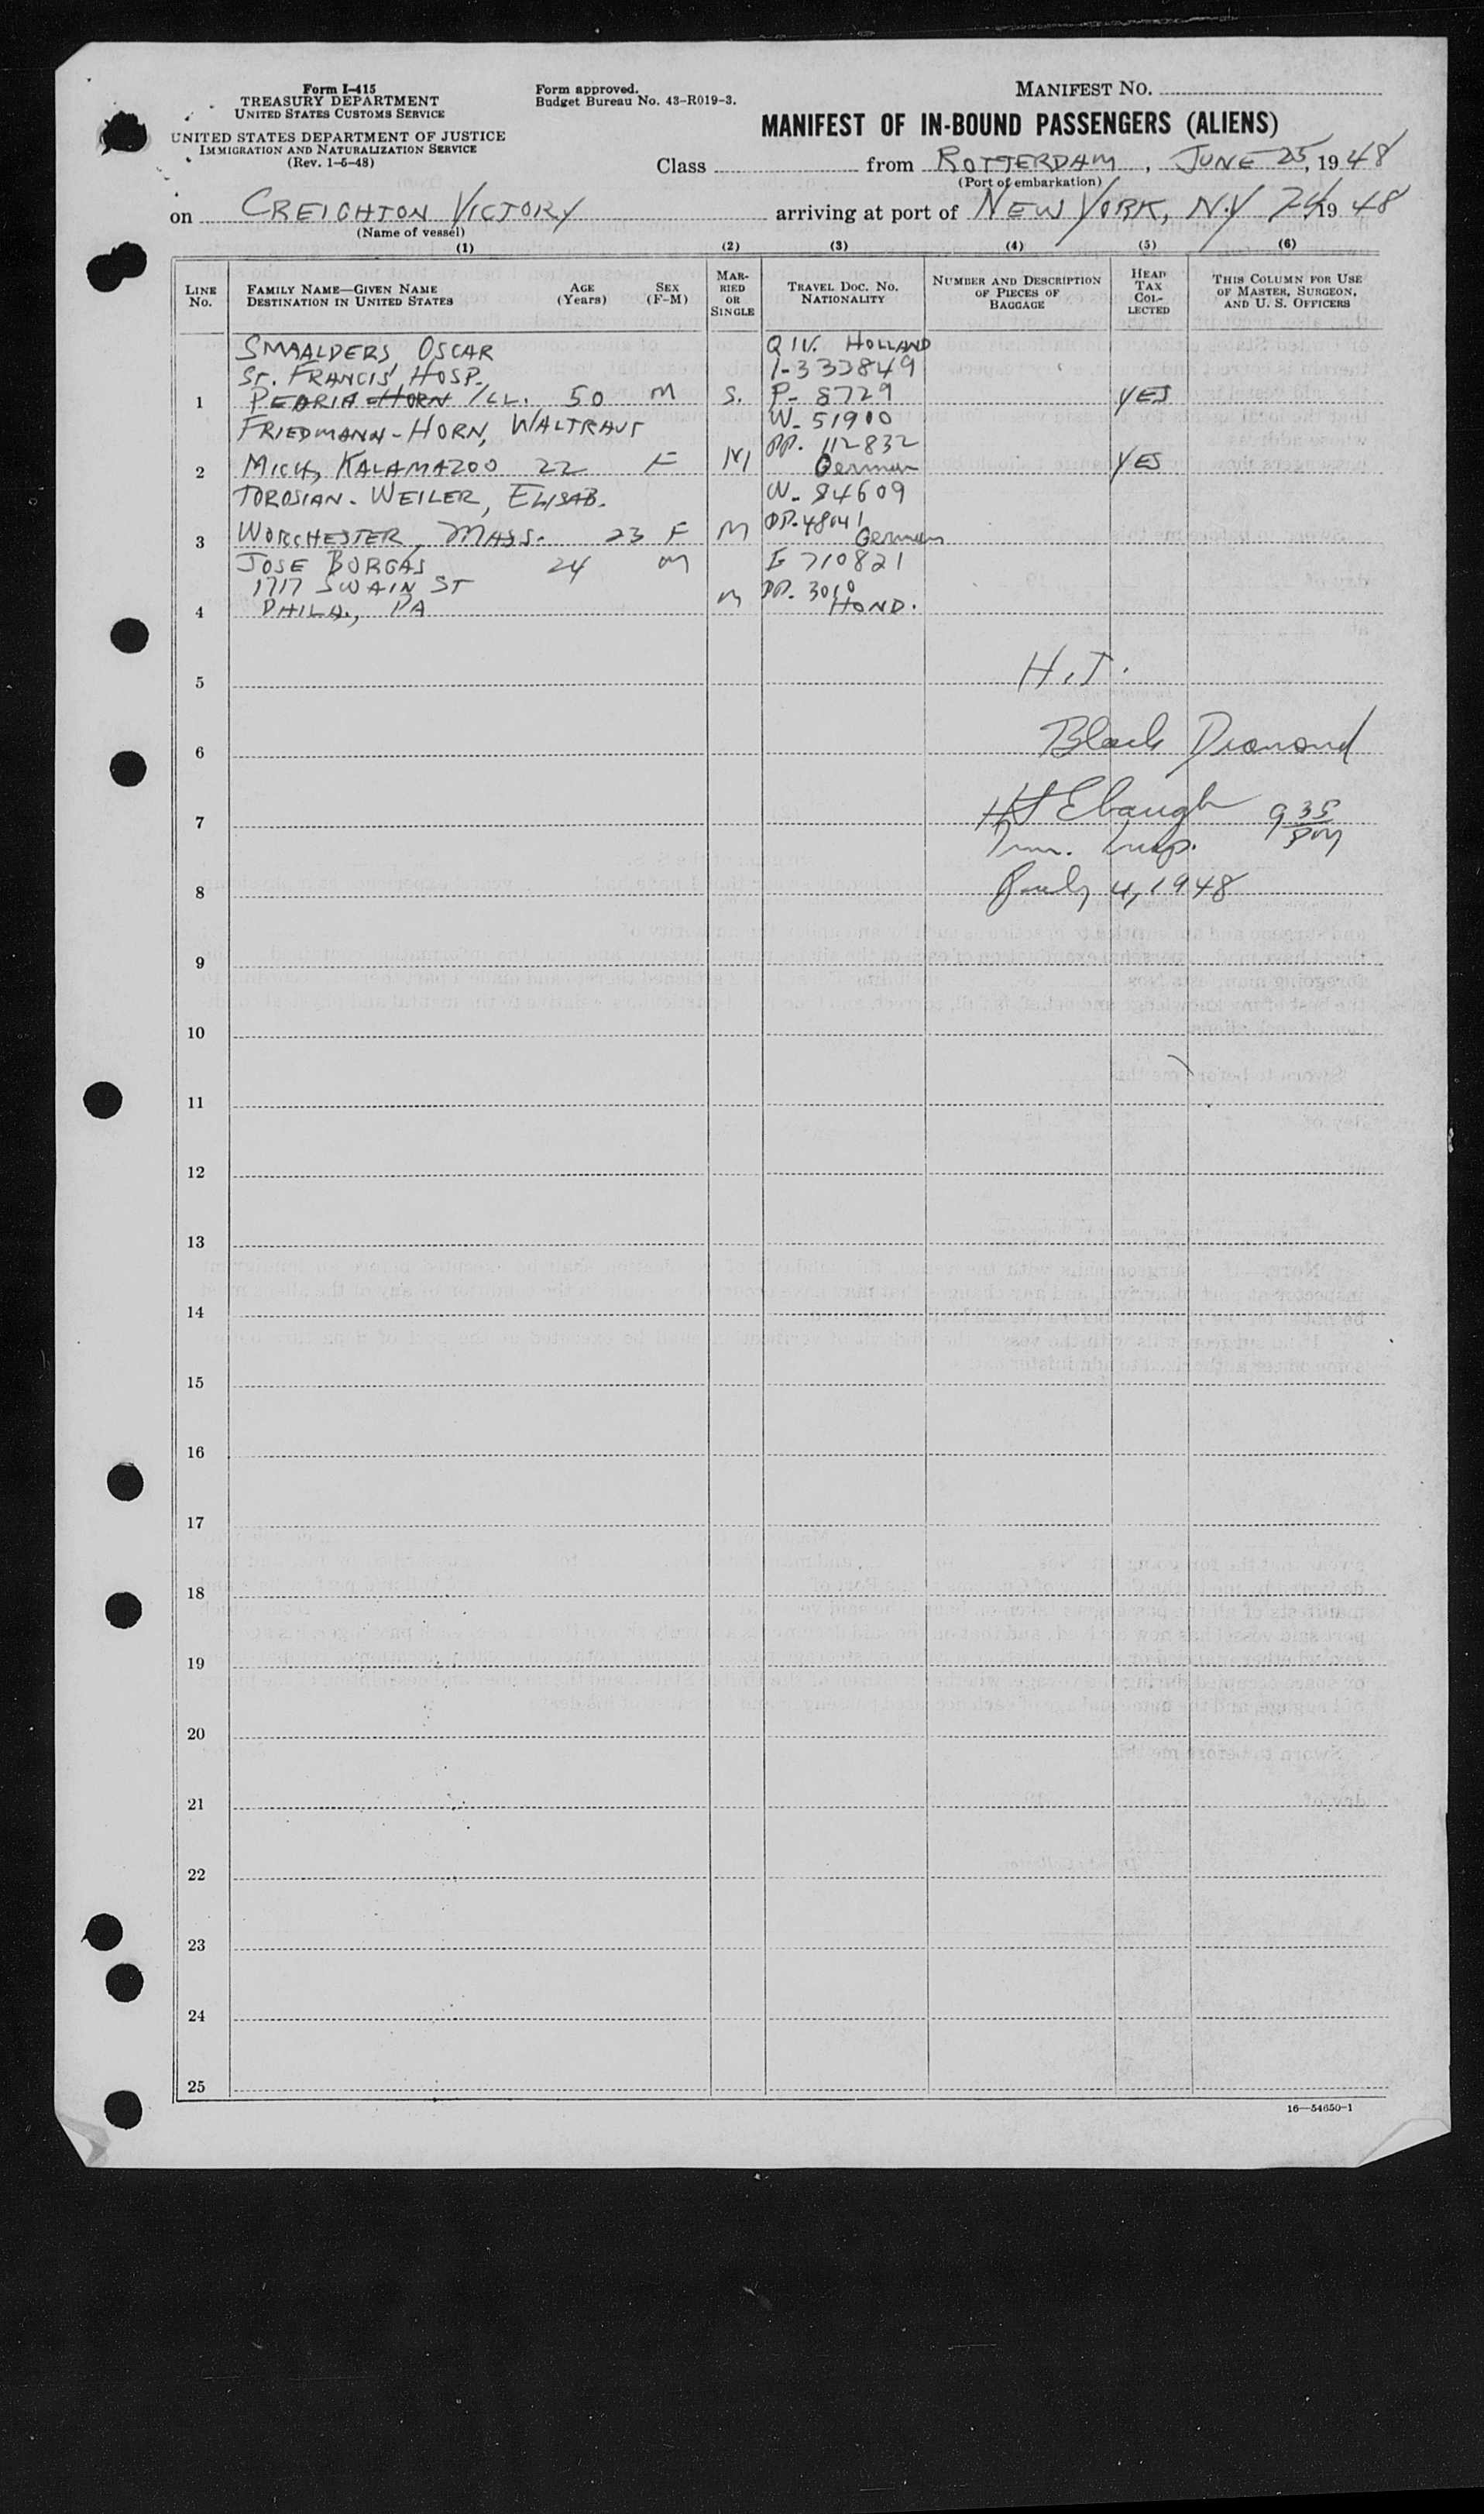 Form I-415
TREASURY DEPARTMENT
UNITED STATES CUSTOMS SERVICE
UNITED STATES DEPARTMENT OF JUSTICE
IMMIGRATION AND NATURALIZATION SERVICE
(Rev. 1-5-48)
Form approved.
Budget Bureau No. 43-R019-3.
MANIFEST NO.
MANIFEST OF IN-BOUND PASSENGERS (ALIENS)
Class from ROTTERDAM, JUNE 25, 1948
(Port of embarkation)
on CREIGHTON VICTORY arriving at port of NEW YORK, N.Y 1948
(Name of vessel)
(1) (2) (3) (4) (5) (6)
LINE No.
FAMILY NAME—GIVEN NAME
DESTINATION IN UNITED STATES
AGE (Years)
SEX (F-M)
MARRIED OR SINGLE
TRAVEL DOC. NO. NATIONALITY
NUMBER AND DESCRIPTION OF PIECES OF BAGGAGE
HEAD TAX COLLECTED
THIS COLUMN FOR USE OF MASTER, SURGEON, AND U. S. OFFICERS
SMAALDERS, OSCAR Q IV. HOLLAND
ST. FRANCIS HOSP. I-333849
1 PEORIA HORN ILL. 50 M S. P- 8729 YES
FRIEDMANN-HORN, WALTRAUT W- 51900
PP. 112832
2 MICH, KALAMAZOO 22 F M German YES
TOROSIAN-WEILER, ELISAB. W- 84609
3 WORCHESTER, MASS. 23 F M PP. 48041 German
JOSE BORGAS 24 M E 710821
1717 SWAIN ST
4 PHILA., PA M PP. 3010 HOND.
5 H.T.
6 Black Diamond
7 Ebaugh 9 35 PM
Imm. Insp.
8 July 4, 1948
9
10
11
12
13
14
15
16
17
18
19
20
21
22
23
24
25
16—54650-1